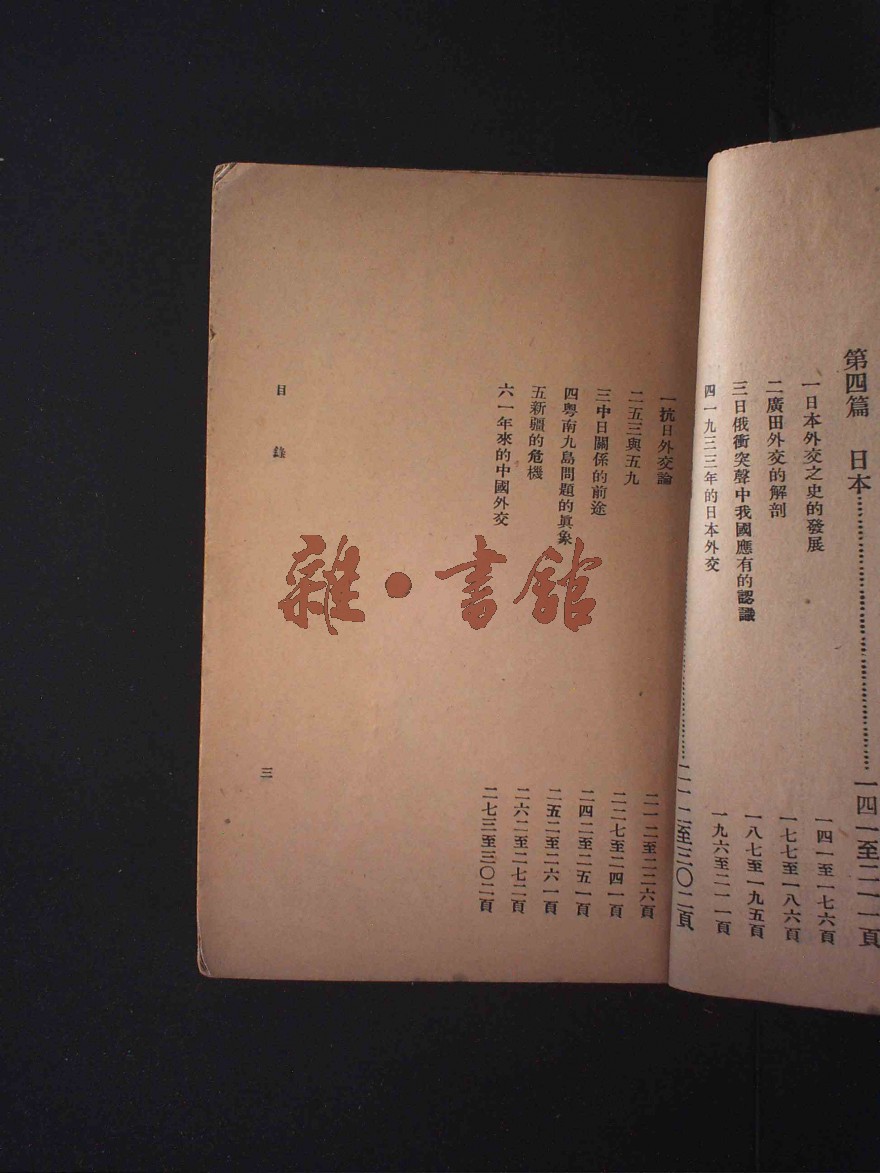 第四篇　日本……一四一至二一一頁
一日本外交之史的發展　一四一至一七六頁
二廣田外交的解剖　一七七至一八六頁
三日俄衝突聲中我國應有的認識　一八七至一九五頁
四一九三三年的日本外交　一九六至二一一頁
……二一二至三〇二頁
一抗日外交論　二一二至二二六頁
二五三與五九　二二七至二四一頁
三中日關係的前途　二四二至二五一頁
四粵南九島問題的眞象　二五二至二六一頁
五新疆的危機　二六二至二七二頁
六一年來的中國外交　二七三至三〇二頁
目錄　三
雜·書館